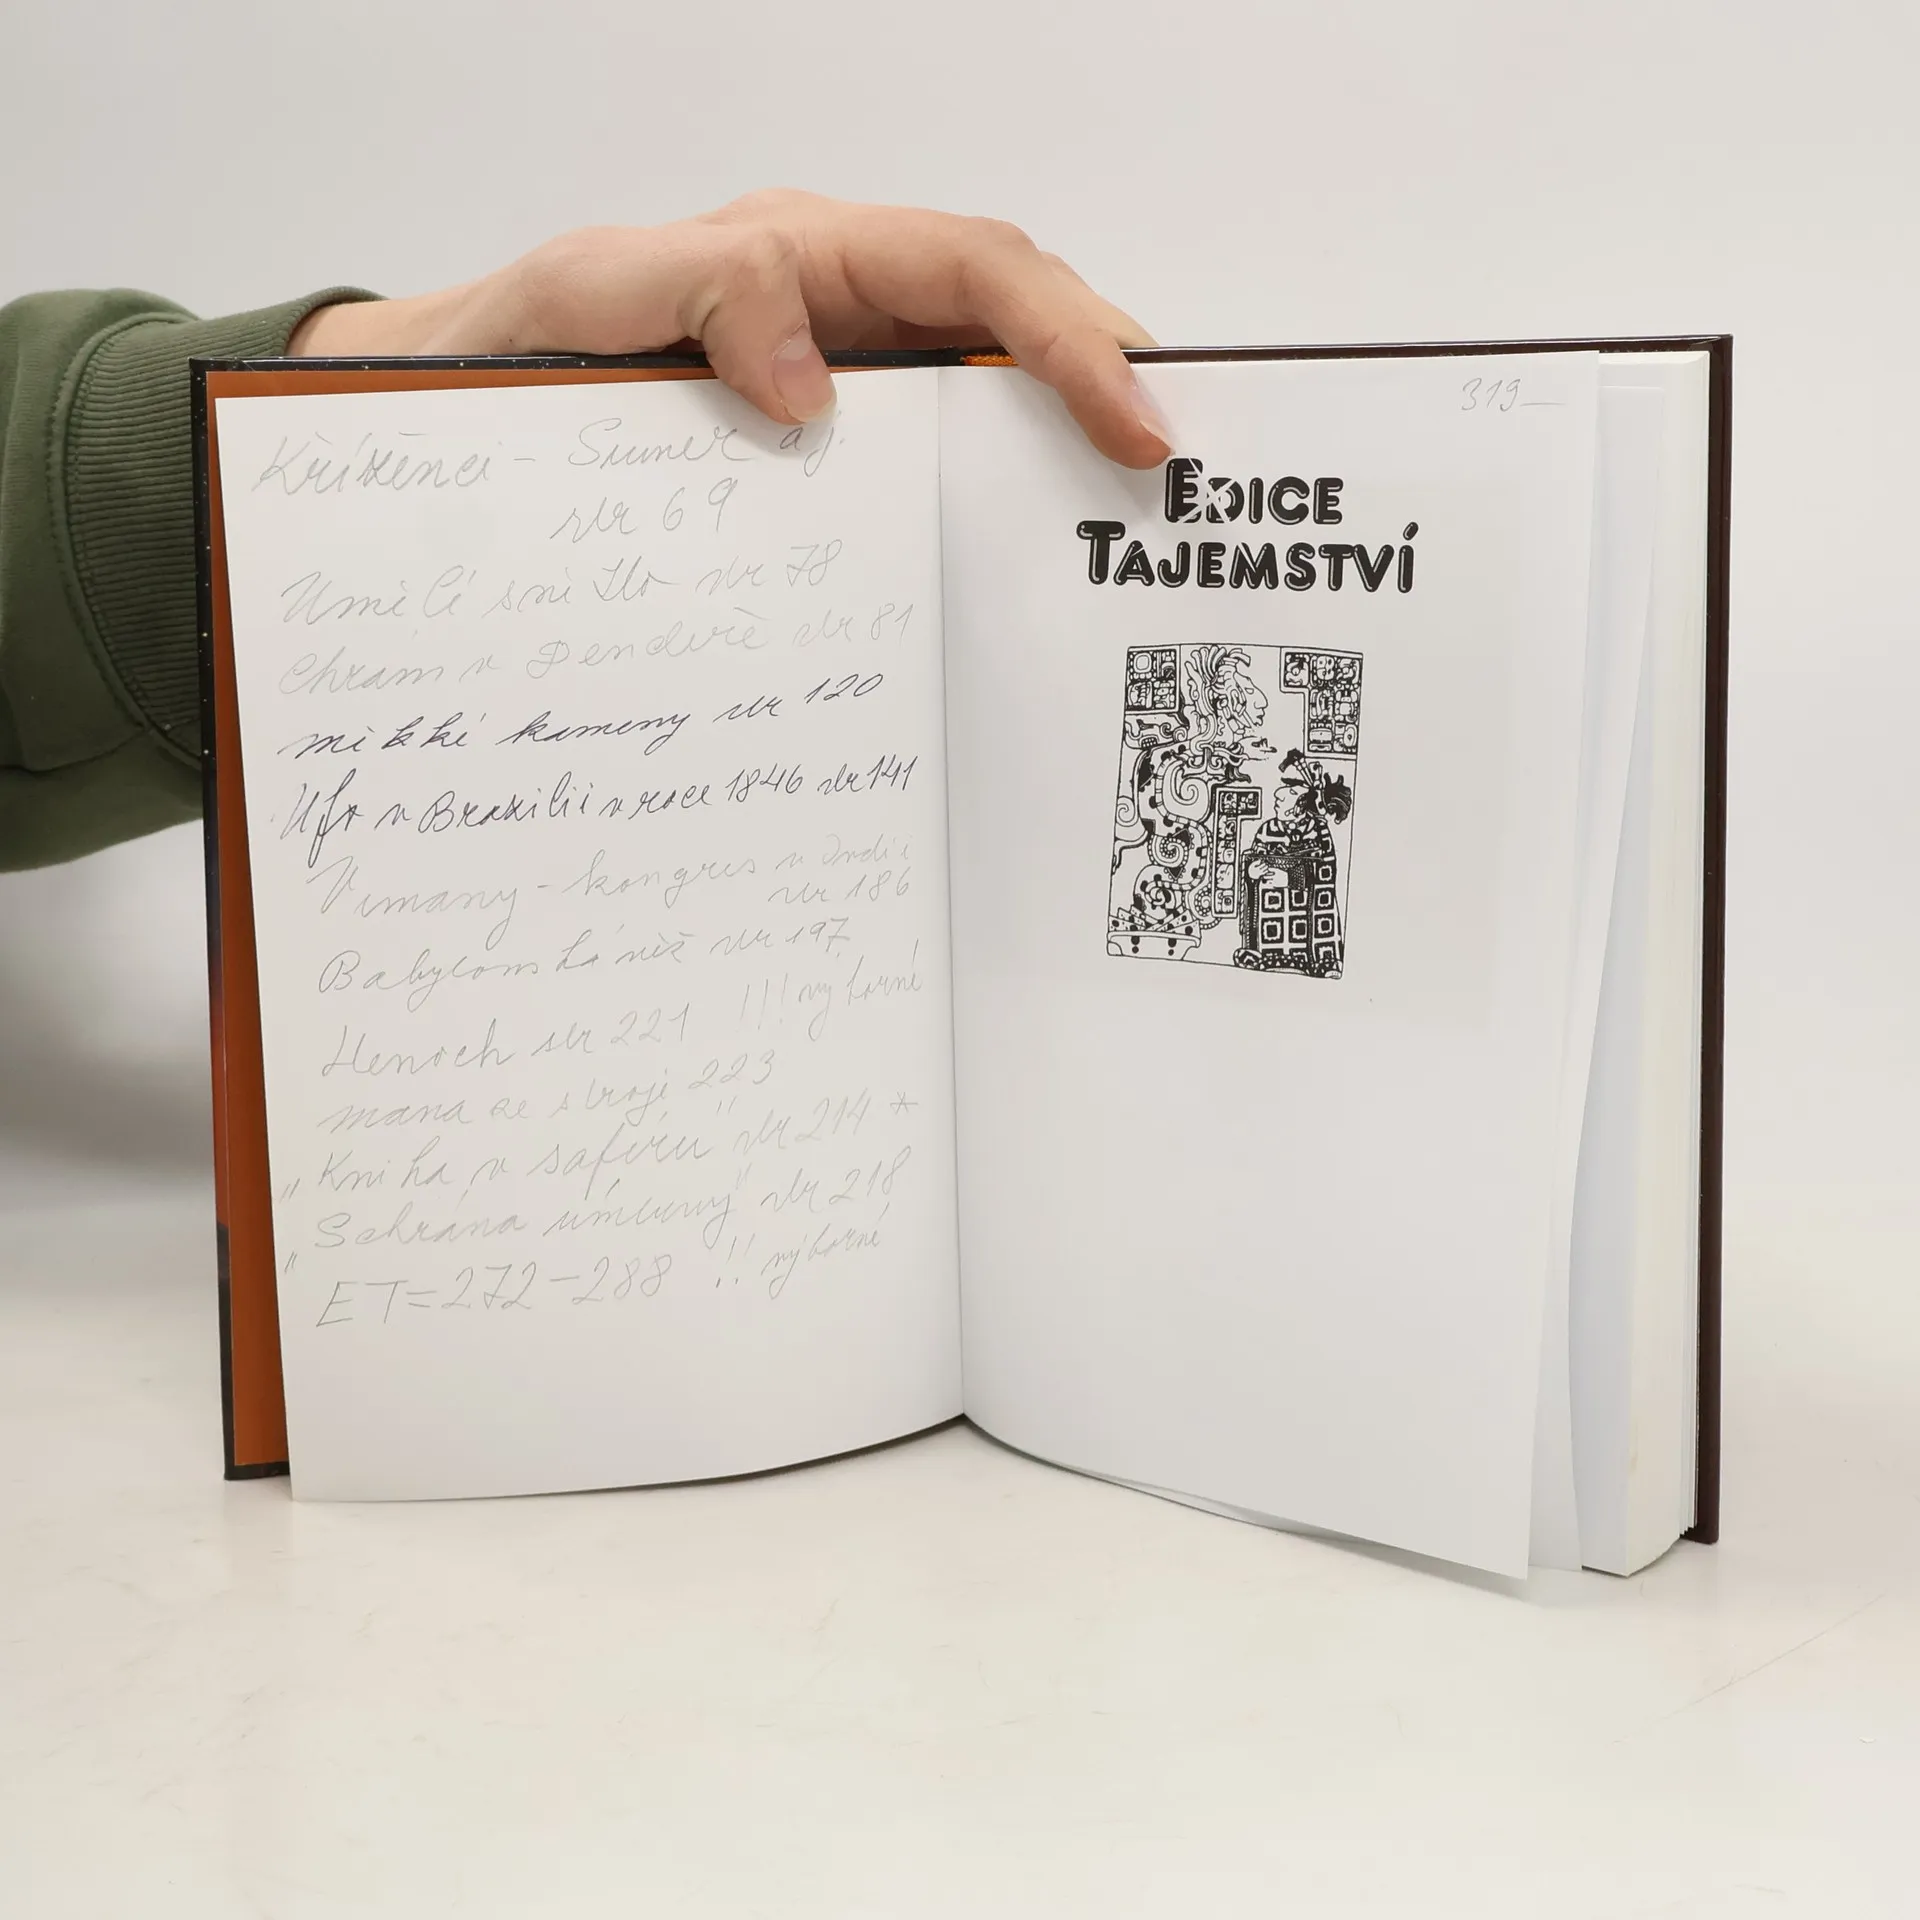 Kříženci - Sumer aj.
str 69
Umělé světlo str 78
Chrám v Dendeře str 81
měkké kameny str 120
Ufo v Brazilii v roce 1846 str 141
Vimany - kongres v Indii
str 186
Babylonská věž str 197
Henoch str 221 !!! výborné
mana ze stroje 223
"Kniha v safíru" str 214 *
"Schrána úmluvy" str 218
ET=272-288 !! výborné
319_
EDICE
TAJEMSTVÍ